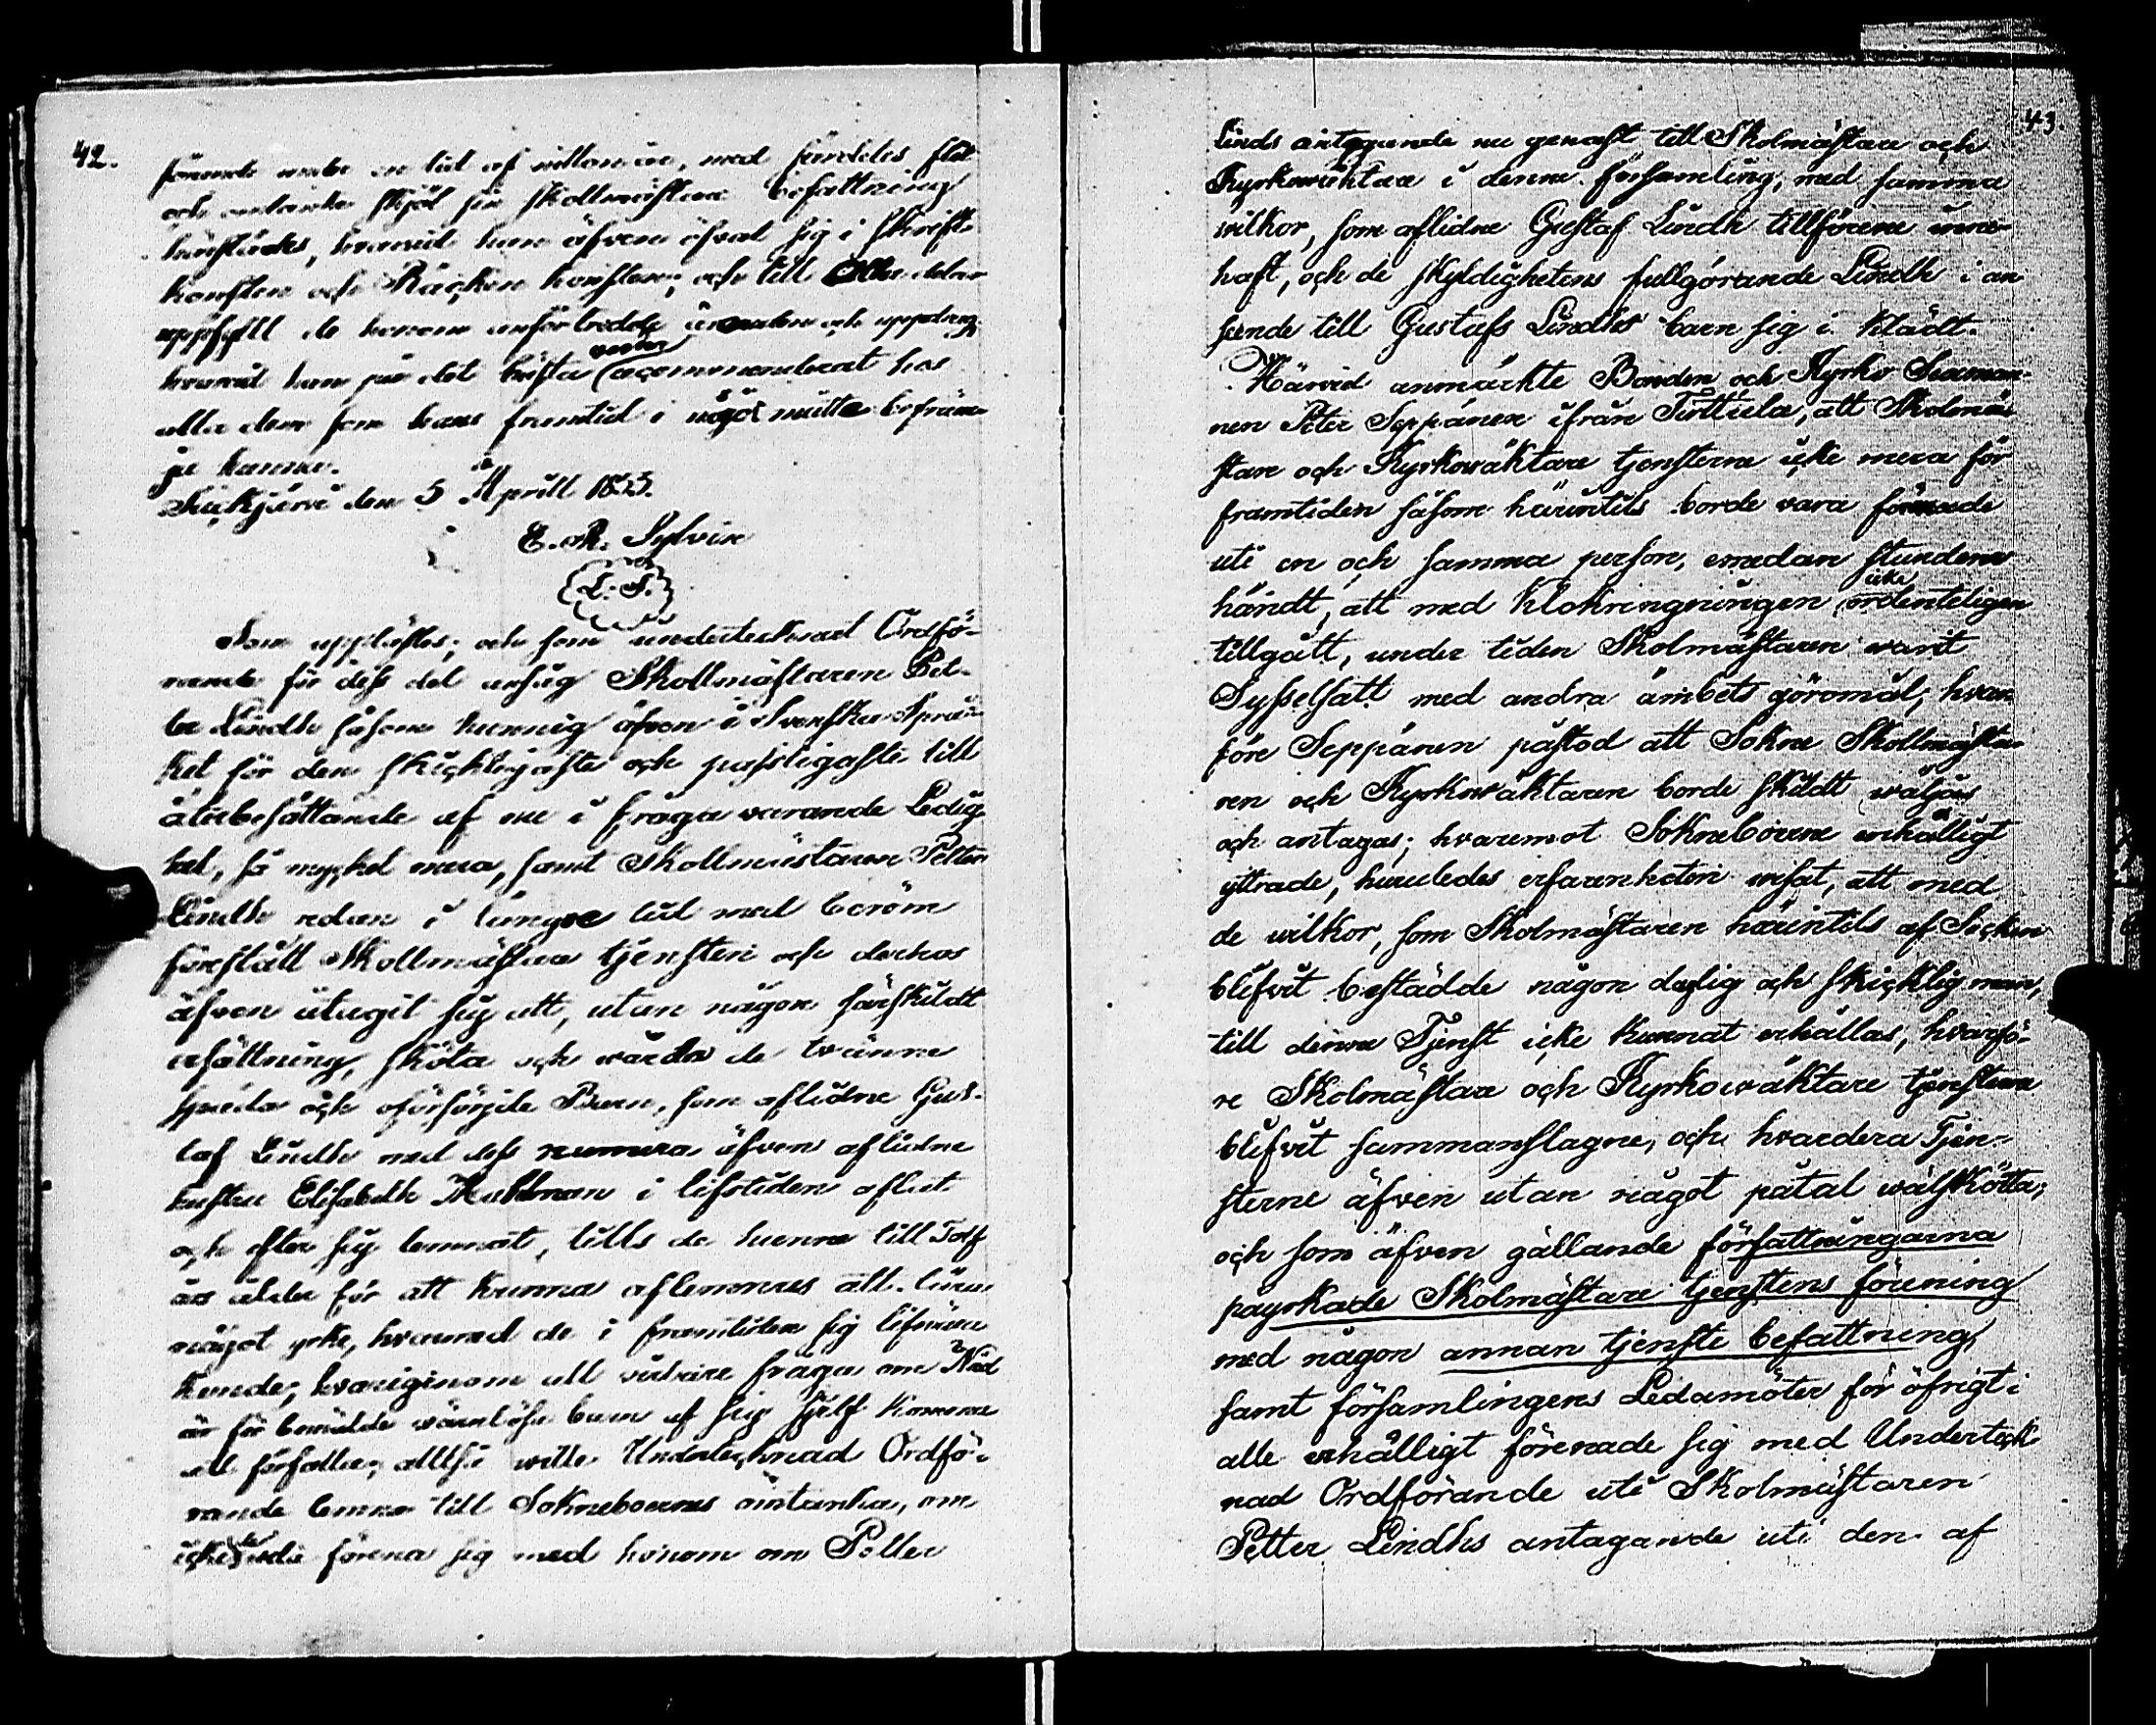 42.
förende under en tid af  år, med särdeles flit
och  skjöl sin Skollmästare befattning
härstädes, hvarvid han äfven öfvat sig i Skrif
konsten och Räcken konsten, och till alla delar
uppfyllt de honom anförtrodde ärender och uppdrag,
hvarvid han på det bästa varder recommenderat hos
alla dem som hans framtid i något måtto befräm
ja kunna.
Säckjärvi den 5 April 1833.
E. A. Sylvin
L. S.
Som upplästes; och som undertecknad Ordfö-
rande för dess del ansåg Skollmästaren Pet-
ter Lindh såsom kunnig äfven i Svenska Språ-
ket för den skickligaste och passligaste till
återbesättande af nu i fråga varande Ledig
het, så mycket mera, samt Skollmästaren Petter
Lindh redan i längre tid med beröm
förestått Skollmästare tjensten och derhos
äfven åtagit sig att, utan någon särskildt
ersättning, sköta och vårda de tvänne
späda och oförsörjde Barn, som aflidne Gus-
taf Lindh med dess numera äfven aflidne
hustru Elisabeth  i lifstiden aflat
och efter sig lemnat, tills de hunne till Tolf
års ålder för att kunna aflemnas att lära
något yrke, hvarmed de i framtiden sig lifnära
kunde; hvarigenom all vidare fråga om Nåd
år för bemälde värnlösa barn af sig sjelf komme
att förfalla; alltså ville Undertecknad Ordfö-
rande lemna till Sokneboernes åtanka, om
icke de  förena sig med honom om Petter
43.
Linds antagande nu genast till Skolmästare och
Kyrkowäktare i denna församling, med samma
wilkor, som aflidne Gustaf Lindh tillförene inne-
haft, och de skyldighetens fullgörande Lindh i an
seende till Gustafs Lindhs barn sig i klädt.
Härvid anmärkte Bonden och Kyrko 
nen Peter Seppänen ifrån , att Skolmä
stare och Kyrkowäktare tjensterne icke mera för
framtiden såsom häruntils borde vara förenade
uti en och samma person, emedan stundom
händt, att med Klokringningen icke ordenteligen
tillgått, under tiden Skolmästaren varit
Sysselsatt med andra ämbets göromål; hvar
före Seppänen påstod att Sokne Skollmästa
ren och Kyrkowäktaren borde skildt wäljas
och antagas; hvaremot Sokneboerne enhälligt
yttrade, huruledes erfarenheten wisat, att med
de wilkor, som Skolmästaren härintils af Socken
blifvit bestådde någon duglig och skicklig man,
till denna Tjenst icke kunnat erhållas, hvarfö-
re Skolmästare och Kyrkowäktare tjensterne
blifvit sammanslagne, och hvardera Tjen-
sterne äfven utan något påtal wälskötta;
och som äfven gällande författningarna
payrkade Skolmästare tjenstens förening
med någon annan tjenste befattning,
samt församlingens Ledamöter för öfrigt i
alle enhälligt förenade sig med Undertek
nad Ordförande uti Skolmästaren
Petter Lindhs antagande uti den af